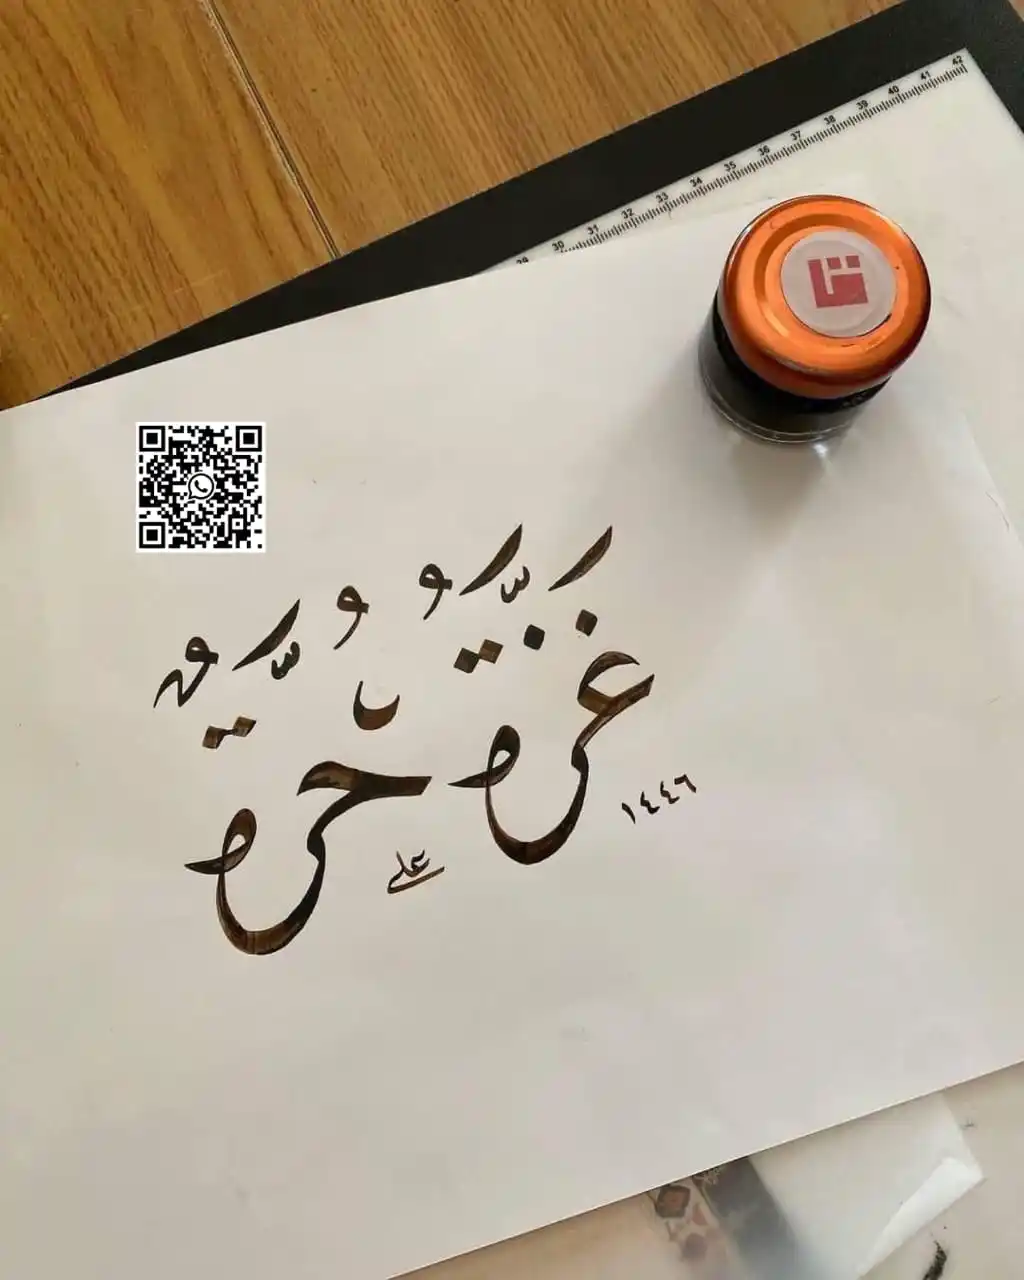 غَزَّةُ حُرَّةٌ
علي
١٤٤٦
29 30 31 32 33 34 35 36 37 38 39 40 41 42